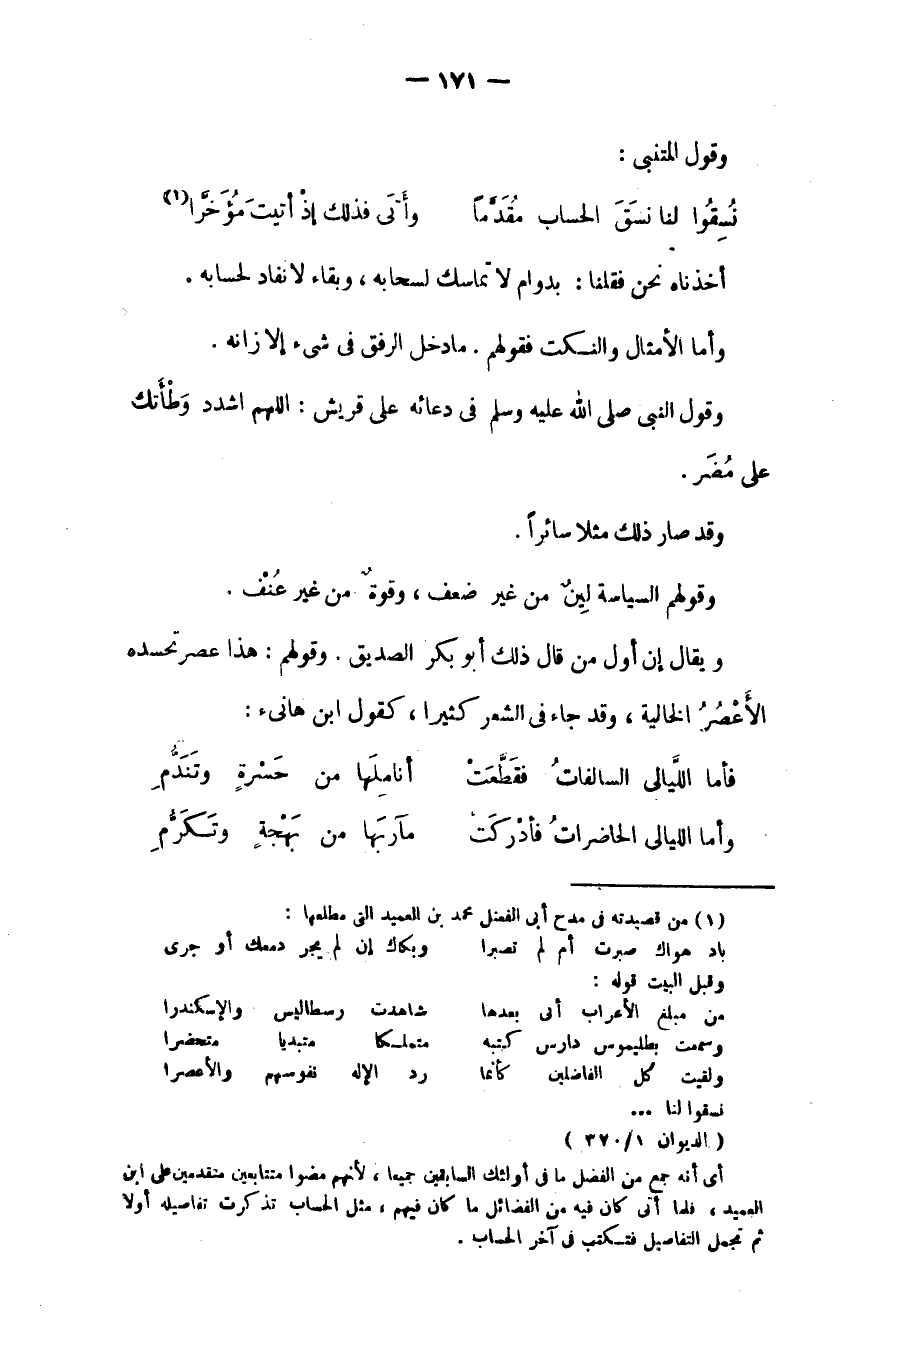 — ١٧١ —
وقول المتنبى :
نُسِقُوا لنا نسَقَ الحساب مُقَدَّماً وأَتَى فذلك إذْ أتيتَ مُؤَخَّرا(١)
أخذناه نحن فقلنا : بدوام لا تماسك لسحابه ، وبقاء لا نفاد لحسابه .
وأما الأمثال والنكت فقولهم . مادخل الرفق فى شىء إلا زانه .
وقول النبى صلى الله عليه وسلم فى دعائه على قريش : اللهم اشدد وَطْأَتك
على مُضَر .
وقد صار ذلك مثلا سائراً .
وقولهم السياسة لِينٌ من غير ضعف ، وقوةٌ من غير عُنْف .
ويقال إن أول من قال ذلك أبو بكر الصديق . وقولهم : هذا عصر تحسده
الأَعْصُرُ الخالية ، وقد جاء فى الشعر كثيرا ، كقول ابن هانىء :
فأما اللَّيالى السالفاتُ فقَطَّعَتْ أناملَها من حَسْرةٍ وتَنَدُّمِ
وأما الليالى الحاضراتُ فأدْركَتْ مآربَها من بَهْجةٍ وتَكَرُّمِ
(١) من قصيدته فى مدح أبى الفضل محمد بن العميد التى مطلعها :
باد هواك صبرت أم لم تصبرا وبكاك إن لم يجر دمعك أو جرى
وقبل البيت قوله :
من مبلغ الأعراب أنى بعدها شاهدت رسطاليس والإسكندرا
وسمعت بطليموس دارس كتبه متملكا متبديا متحضرا
ولقيت كل الفاضلين كأنما رد الإله نفوسهم والأعصرا
نسقوا لنا ...
( الديوان ٣٧٠/١ )
أى أنه جمع من الفضل ما فى أولئك السابقين جميعا ، لأنهم مضوا متتابعين متقدمين على ابن
العميد ، فلما أتى كان فيه من الفضائل ما كان فيهم ، مثل الحساب تذكرت تفاصيله أولا
ثم تجمل التفاصيل فتكتب فى آخر الحساب .